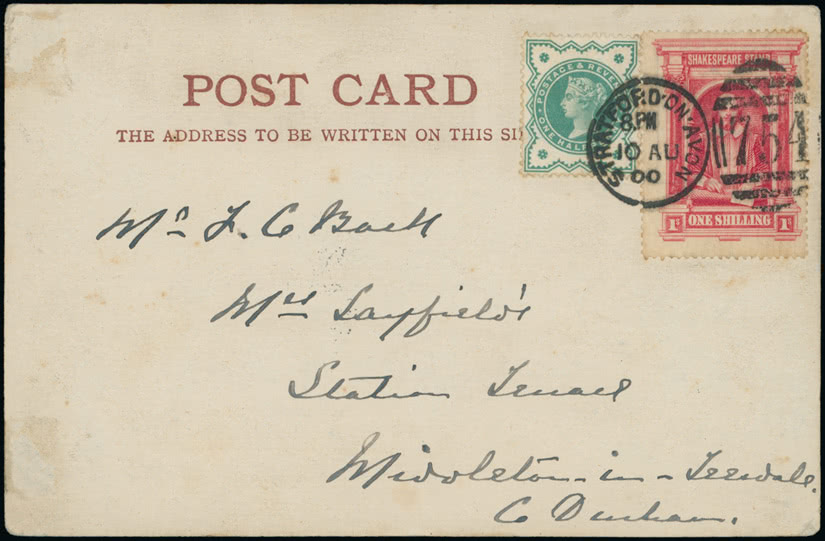 POST CARD
THE ADDRESS TO BE WRITTEN ON THIS SI
POSTAGE & REVE
ONE HALF
SHAKESPEARE STAMP
1s ONE SHILLING 1s
STRATFORD-ON-AVON
8 PM
10 AU
00
754
Mr F. C
Mrs Layfield's
Station Terrace
Middleton-in-Teesdale.
Co Durham.